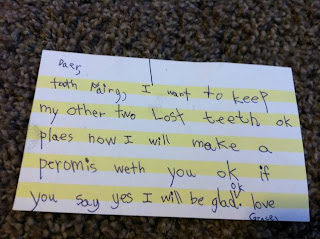 Daer,
teoth Fairg, I want to keep
my other two Lost teeth ok
plaes now I will make a
peromis weth you ok if
you say yes I will be glad. ok love
Graces